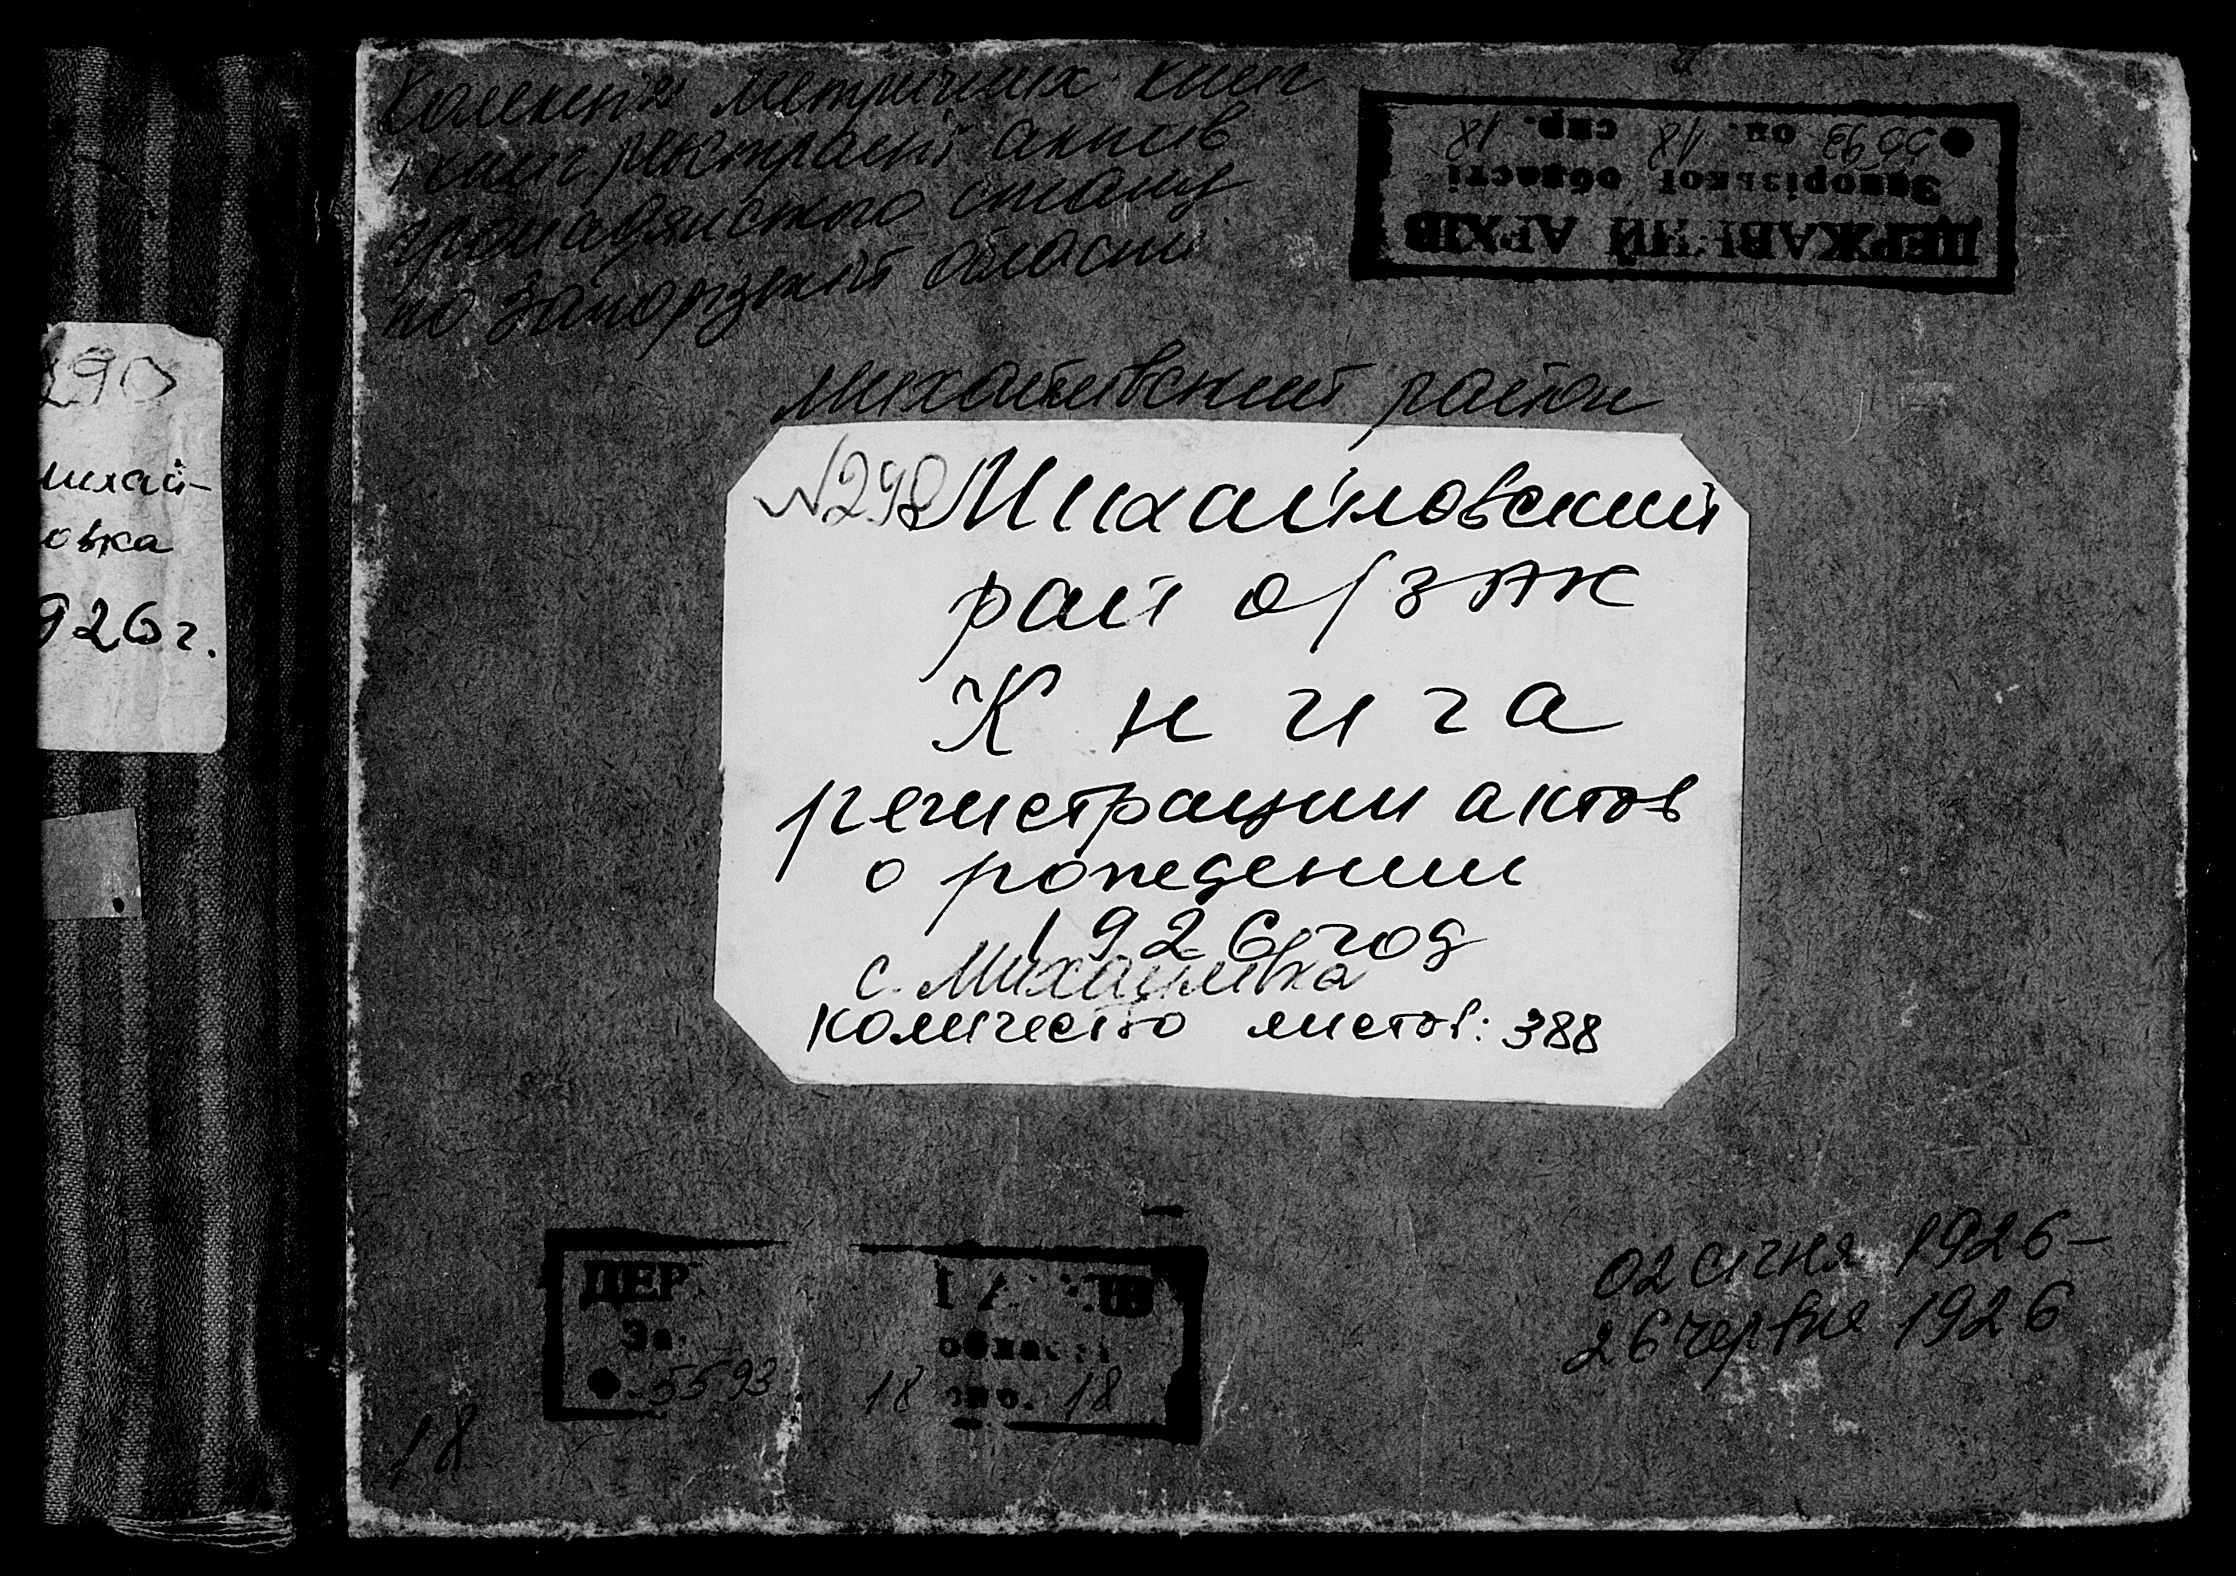 Колекція метричних книг
і книг реєстрації актів
громадянського стану
по Запорізькій області
ДЕРЖАВНИЙ АРХІВ
Запорізької області
Ф. 5593 оп. 18 спр. 18
Михайлівський район
№290 Михайловский
рай о/ЗАГС
Книга
регистрации актов
о рождении
1926 год
с. Михайлівка
количество листов: 388
290
Михай-
овка
926 г.
02 січня 1926 –
26 червня 1926
ДЕР ХІВ
За області
Ф. 5593 18 спр. 18
18